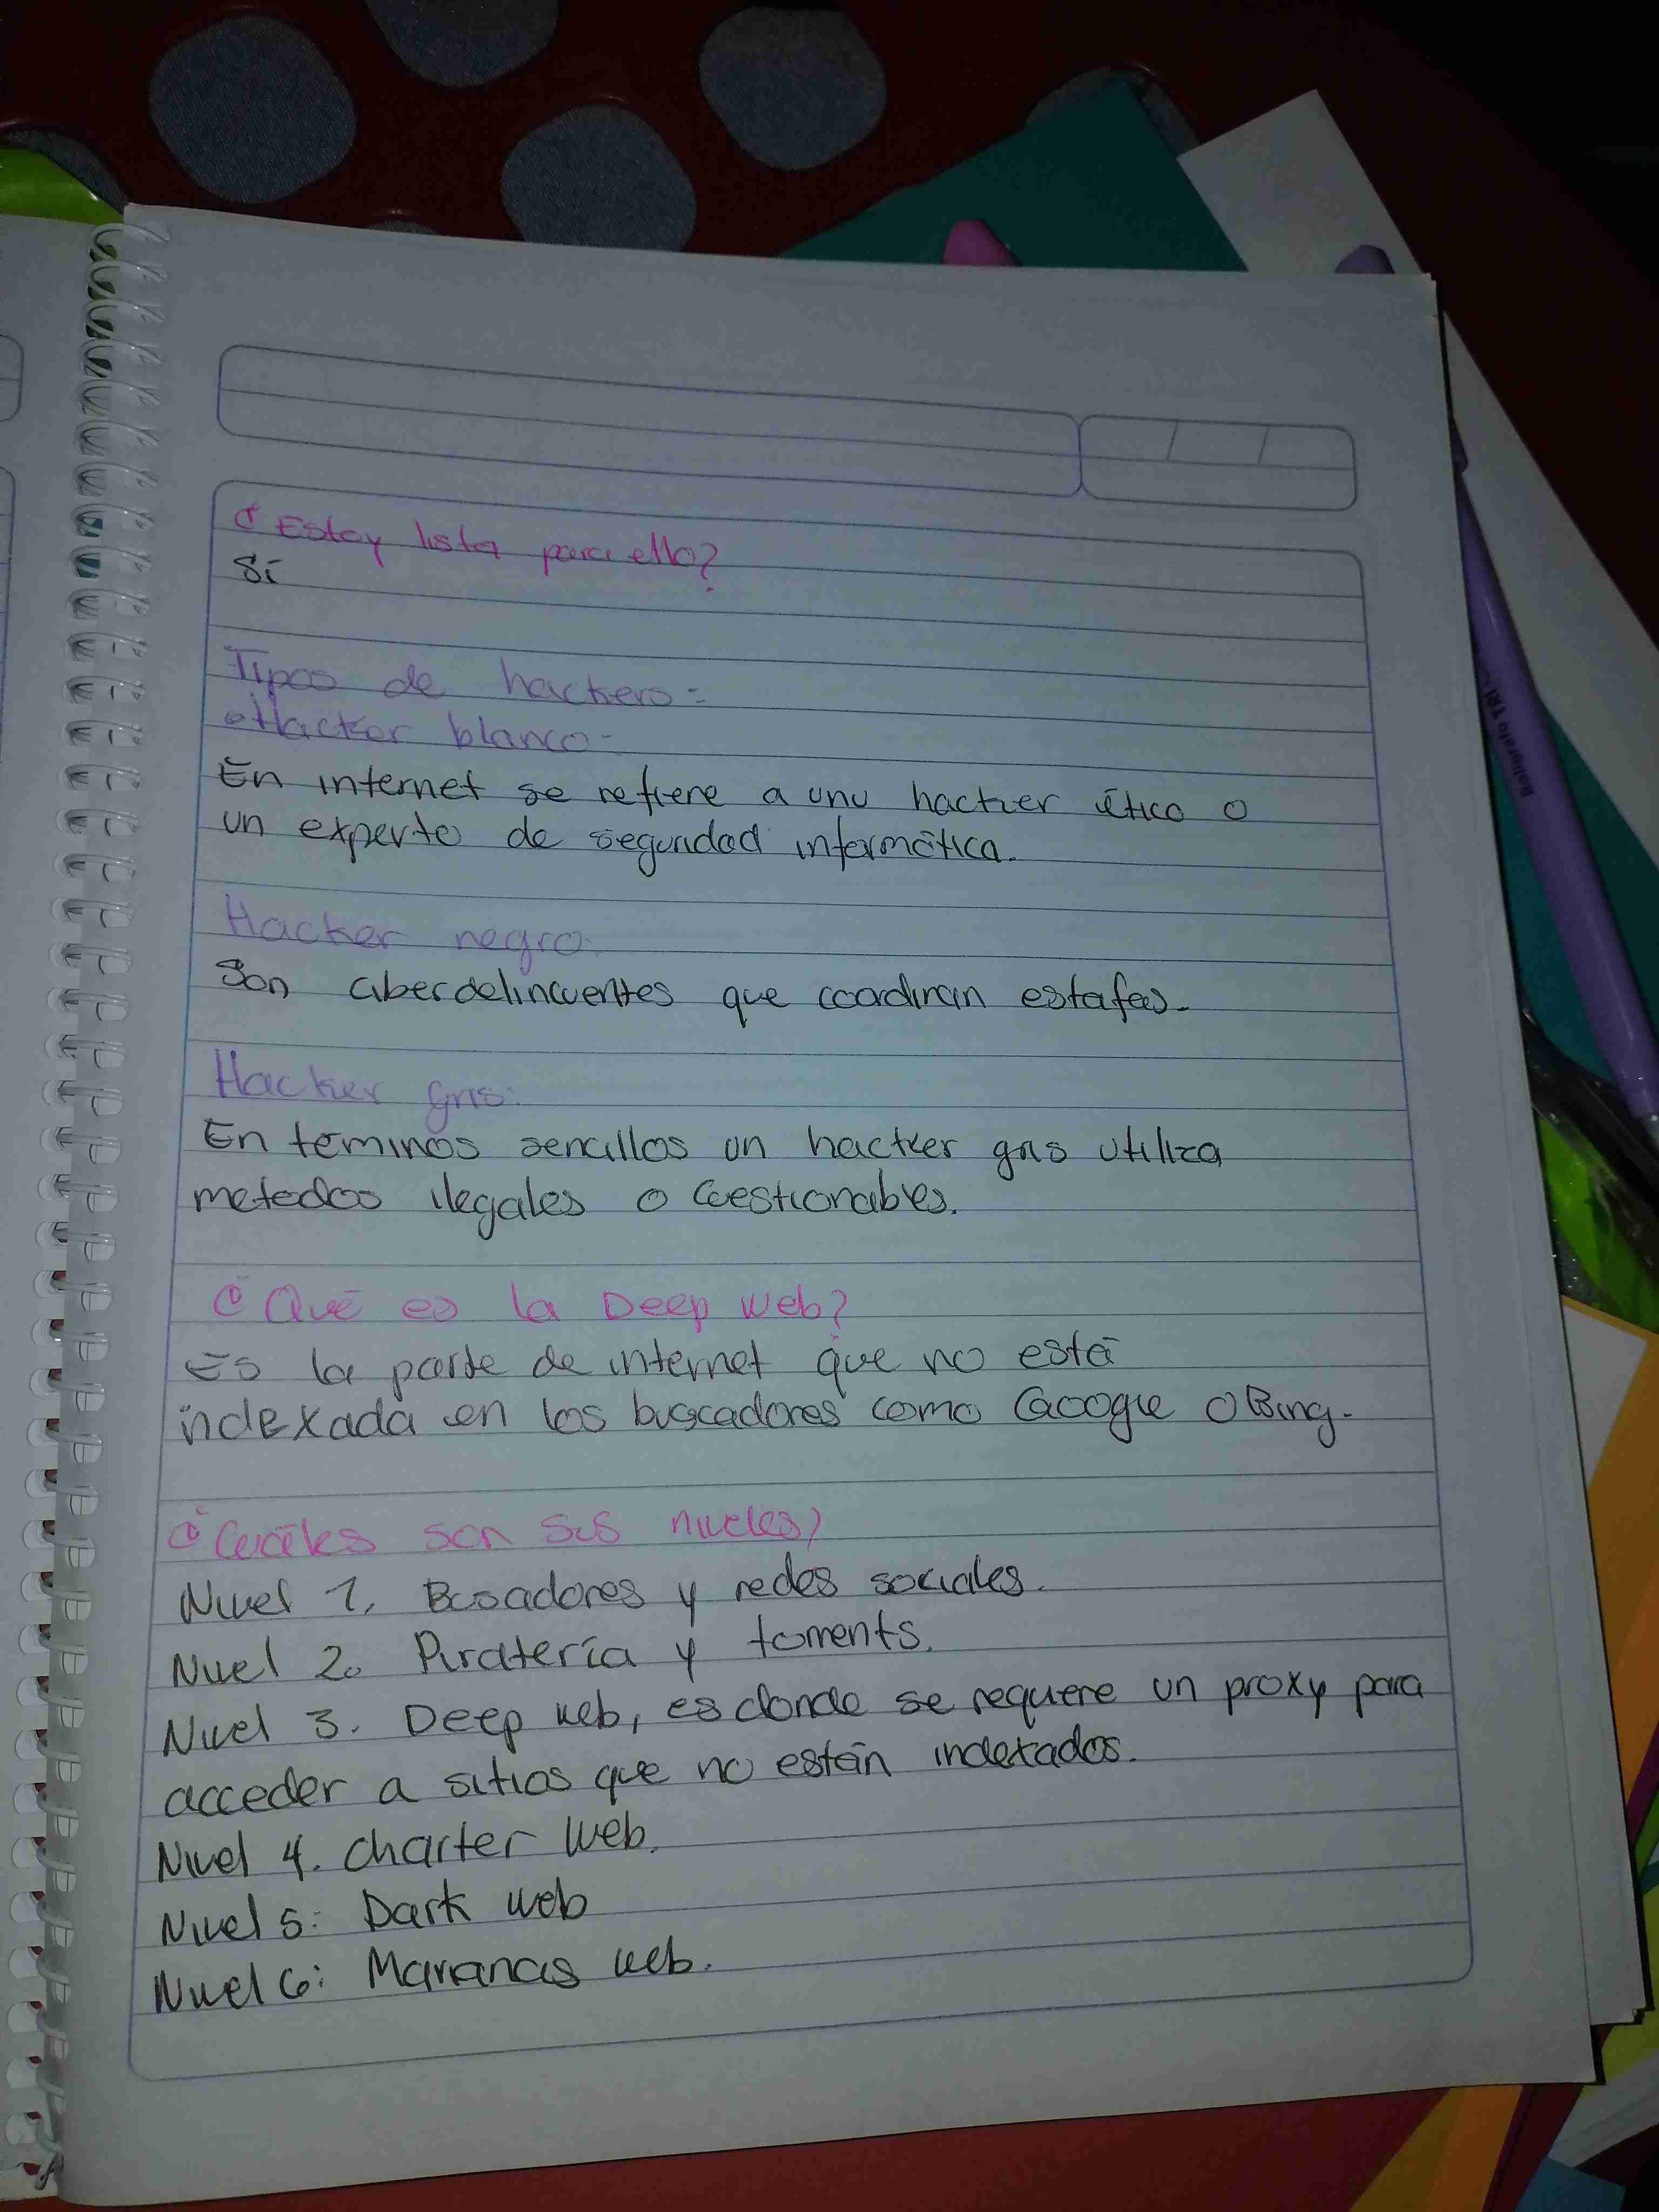 ¿Estoy lista para ello?
Sí
Tipos de hackers:
Hacker blanco:
En internet se refiere a unu hacker ético o
un experto de seguridad informática.
Hacker negro:
Son ciberdelincuentes que coordinan estafas.
Hacker gris:
En terminos sencillos un hacker gris utiliza
metedos ilegales o cuestionables.
¿Qué es la Deep web?
Es la parte de internet que no está
indexada en los buscadores como Google o Bing.
¿Cuáles son sus niveles?
Nivel 1. Buscadores y redes sociales.
Nivel 2. Piratería y torrents.
Nivel 3. Deep web, es donde se requiere un proxy para
acceder a sitios que no están indexados.
Nivel 4. charter web.
Nivel 5: Dark web
Nivel 6: Marianas web.